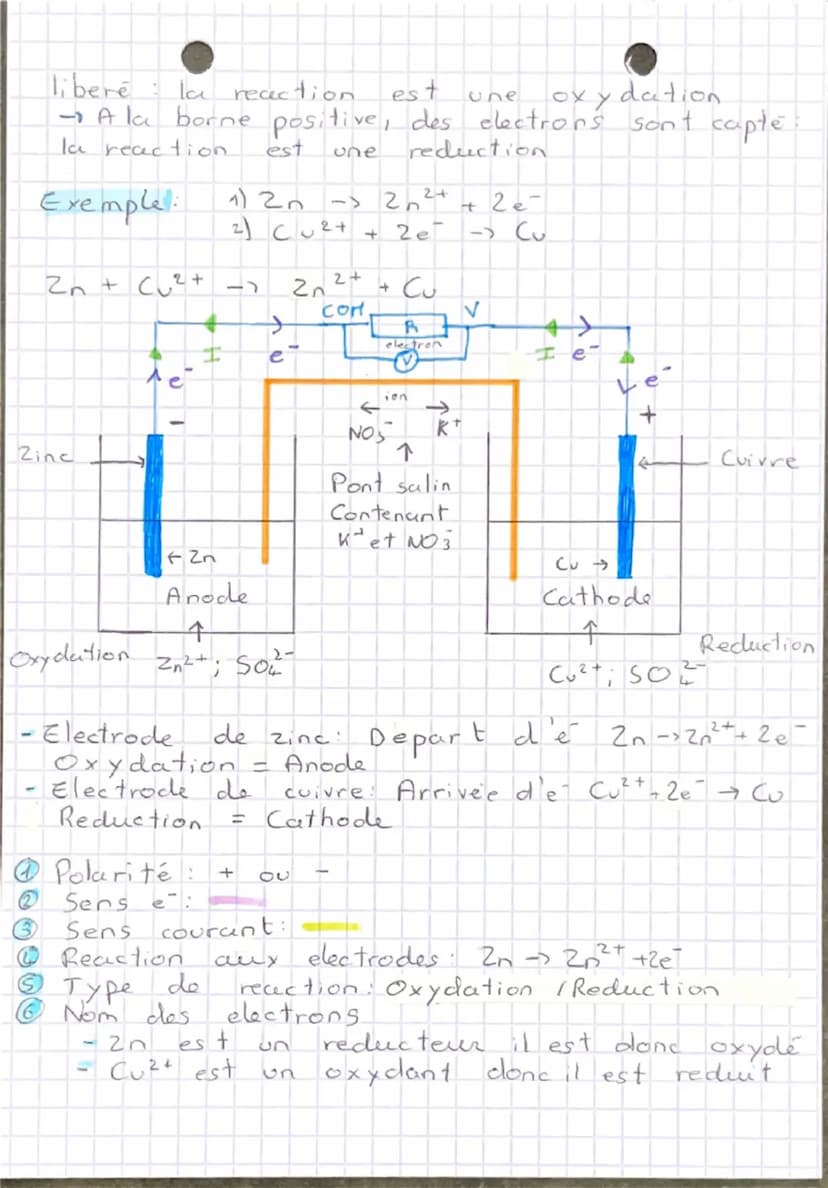 liberé : la reaction est une oxydation
→ A la borne positive, des electrons sont capté :
la reaction est une reduction
Exemple : 1) Zn -> Zn²⁺ + 2e⁻
2) Cu²⁺ + 2e⁻ -> Cu
Zn + Cu²⁺ -> Zn²⁺ + Cu
com V
R
I e⁻ electron I e⁻
V
e⁻ e⁻
- ion +
NO₃⁻ K⁺
Zinc Cuivre
Pont salin
Contenant
K⁺ et NO₃⁻
← Zn Cu →
Anode Cathode
Oxydation Zn²⁺ ; SO₄²⁻ Reduction
Cu²⁺ ; SO₄²⁻
- Electrode de zinc : Depart d'e⁻ Zn -> Zn²⁺ + 2e⁻
Oxydation = Anode
- Electrode de cuivre : Arrivée d'e⁻ Cu²⁺ + 2e⁻ → Cu
Reduction = Cathode
① Polarité : + ou -
② Sens e⁻ :
③ Sens courant :
④ Reaction aux electrodes : Zn -> Zn²⁺ + 2e⁻
⑤ Type de reaction : Oxydation / Reduction
⑥ Nom des electrons
- Zn est un reducteur il est donc oxydé
- Cu²⁺ est un oxydant donc il est reduit